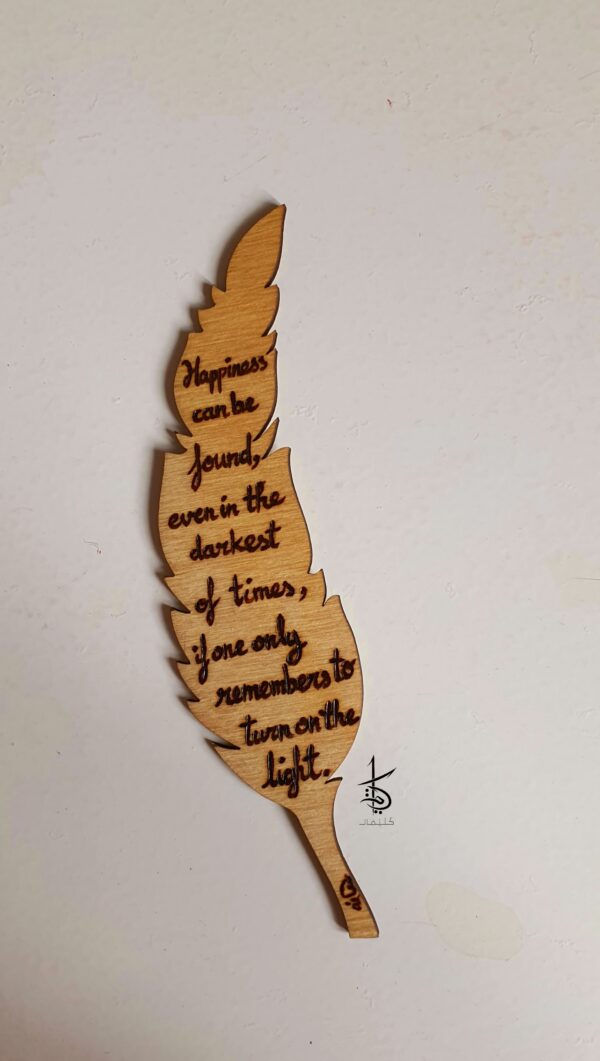 Happiness
can be
found,
even in the
darkest
of times,
if one only
remembers to
turn on the
light.